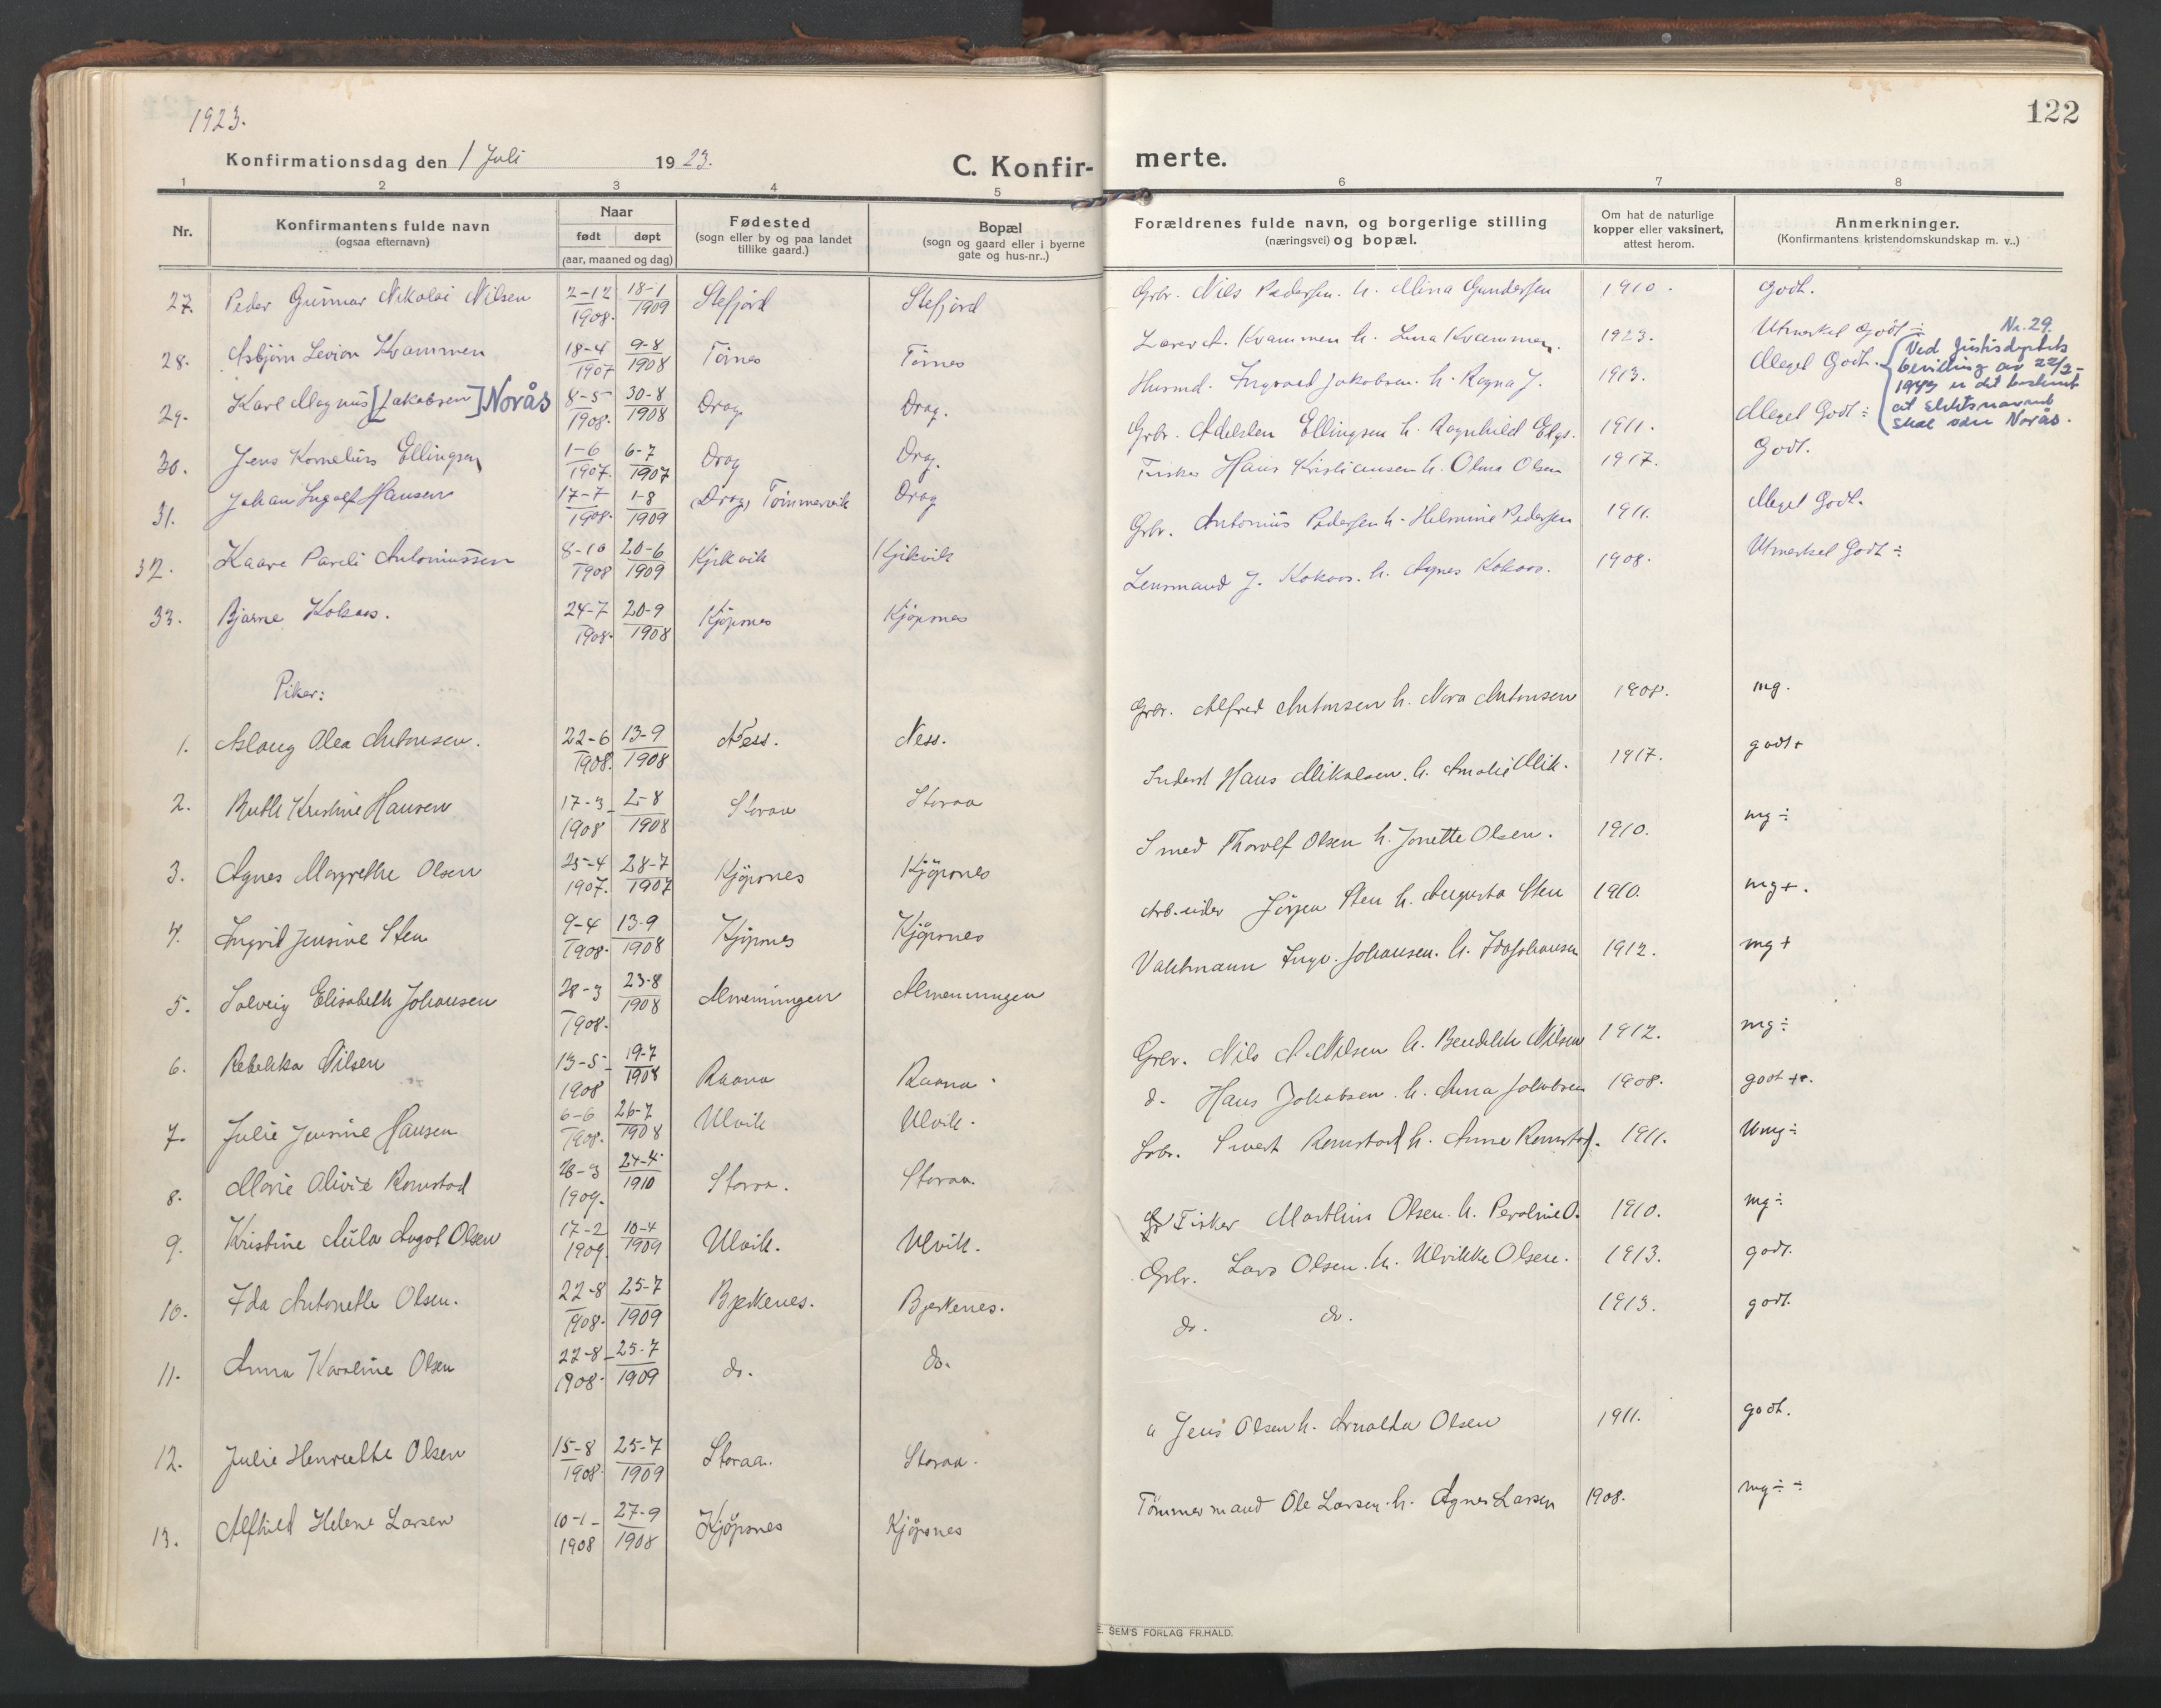 1923.
122
Konfirmationsdag den 1 Juli 1923.
C. Konfir-
merte.
1 2 3 4 5 6 7 8
Nr.
Konfirmantens fulde navn
(ogsaa efternavn)
Naar
født døpt
(aar, maaned og dag)
Fødested
(sogn eller by og paa landet
tillike gaard.)
Bopæl
(sogn og gaard eller i byerne
gate og hus-nr..)
Forældrenes fulde navn, og borgerlige stilling
(næringsvei) og bopæl.
Om hat de naturlige
kopper eller vaksinert,
attest herom.
Anmerkninger.
(Konfirmantens kristendomskundskap m. v..)
27. Peder Gunnar Nikolai Nilsen 2-12 1908. 18-1 1909 Stefjord Stefjord Grbr. Nils Pedersen. h. Mina Gundersen 1910. Godt.
28. Asbjörn Levion Kvammen 18-4 1907 9-8 1908 Törnes Törnes Lærer A. Kvammen h. Lina Kvammen. 1923. Utmerket Godt ÷
29. Karl Magnus [Jakobsen] Norås 8-5 1908. 30-8 1908 Drag Drag. Husmd. Ingvald Jakobsen. h. Ragna J. 1913. Meget Godt.
Nr. 29.
Ved Justisdeptets
bevilling av 22/3-
1943 er det bestemt
at slektsnavnet
skal være Norås.
30. Jens Kornelius Ellingsen 1-6 1907. 6-7 1907 Drag Drag. Grbr. Adelsten Ellingsen h. Ragnhild Elgs. 1911. Meget Godt ÷
31. Johan Ingolf Hansen 17-7 1908. 1-8 1909 Drag, Tömmervik Drag Fisker Hans Kristiansen h. Olma Olsen 1917. Godt.
32. Kaare Pareli Antoniussen 8-10 1908 20-6 1909 Kjikvik Kjikvik Grbr. Antonius Pedersen h. Helmine Pedersen 1911. Meget Godt.
33. Bjarne Kokaas. 24-7 1908. 20-9 1908 Kjöpsnes Kjöpsnes Lensmand J. Kokaas. h. Agnes Kokaas. 1908. Utmerket Godt ÷
Piker:
1. Aslaug Olea Antonsen. 22-6 1908. 13-9 1908 Ness. Ness. Grbr. Alfred Antonsen h. Nora Antonsen 1908. mg.
2. Ruth Kristine Hansen 17-3 1908 2-8 1908 Storaa Storaa Inderst Hans Mikalsen. h. Amalie Mik. 1917. godt+
3. Agnes Margrethe Olsen 25-4 1907. 28-7 1907 Kjöpsnes Kjöpsnes Smed Thorolf Olsen h. Jonette Olsen. 1910. mg ÷
4. Ingrid Jensine Sten 9-4 1908. 13-9 1908 Kjöpsnes Kjöpsnes Arbeider Jörgen Sten h. Augusta Sten 1910. mg+.
5. Solveig Elisabeth Johansen 28-3 1908. 23-8 1908 Almenningen Almenningen Vaktmann Ingv. Johansen. h. Ida Johansen 1912. mg +
6. Rebekka Nilsen 13-5 1908 19-7 1908 Raana Raana Grbr. Nils A. Nilsen h. Bendikte Nilsen 1912. mg ÷
7. Julie Jensine Hansen 6-6 1908. 26-7 1908 Ulvik Ulvik. d. Hans Jakobsen. h. Anna Jakobsen 1908. godt +.
8. Marie Olivie Romstad 28-3 1909. 24-4 1910 Storaa. Storaa. Grbr. Sivert Romstad h. Anne Romstad. 1911. Umg ÷
9. Kristine Aula Augot Olsen 17-2 1909. 10-4 1909 Ulvik. Ulvik. Fisker Marthin Olsen. h. Peroline O. 1910. mg ÷
10. Ida Antonette Olsen. 22-8 1908. 25-7 1909 Bjerkenes. Bjerkenes. Grbr. Lars Olsen. h. Ulrikke Olsen. 1913. godt.
11. Anna Karoline Olsen 22-8 1908. 25-7 1909 do. do. do. do. 1913. godt.
12. Julie Henriette Olsen 15-8 1908. 25-7 1909 Storaa. Storaa. " Jens Olsen h. Arnolda Olsen 1911. godt.
13. Alfhild Helene Larsen 10-1 1908 27-9 1908 Kjöpsnes Kjöpsnes Tömmermand Ole Larsen. h. Agnes Larsen 1908. mg ÷ ÷
E. SEM'S FORLAG FR.HALD.